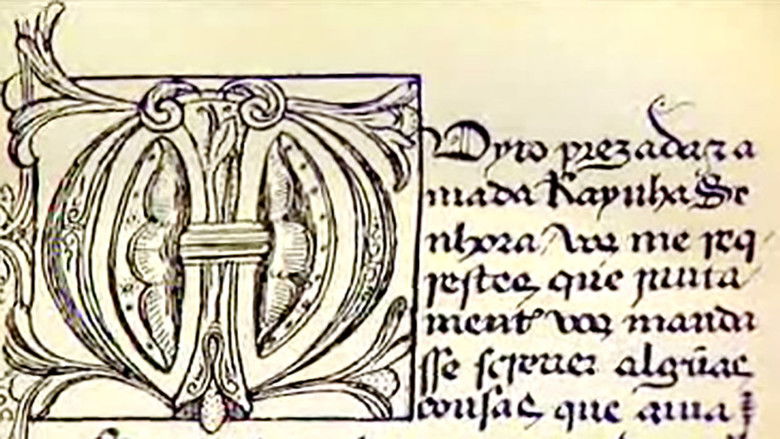 MUyto prezada z a
mada Raynha Se
nhora vos me req
restes que junta
ment' vos manda
sse screuer algũas
cousas que auia